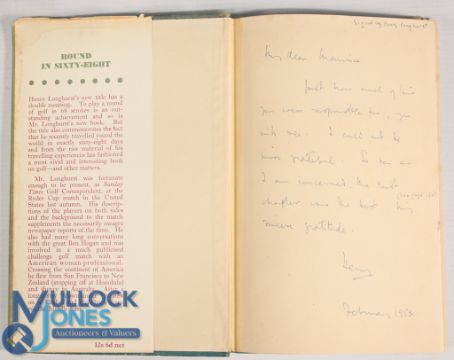 ROUND
IN SIXTY-EIGHT
Henry Longhurst's new title has a
double meaning. To play a round
of golf in 68 strokes is an out-
standing achievement and so is
Mr. Longhurst's new book. But
the title also commemorates the fact
that he recently travelled round the
world in exactly sixty-eight days
and from the raw material of his
travelling experiences has fashioned
a most vivid and interesting book
on golf—and other matters.
Mr. Longhurst was fortunate
enough to be present, as Sunday
Times Golf Correspondent, at the
Ryder Cup match in the United
States last autumn. His descrip-
tions of the players on both sides
and the background to the match
supplements the necessarily meagre
newspaper reports of the time. He
also had many long conversations
with the great Ben Hogan and was
involved in a much publicised
challenge golf match with an
American woman professional.
Crossing the continent of America
he flew from San Francisco to New
Zealand (stopping off at Honolulu)
and thence to Australia. After a
12s 6d net
MULLOCK
JONES
Auctioneers & Valuers
Signed by Henry Longhurst
My dear Maurice
Just how much of this
you were responsible for, you
will see. I could not be
more grateful. So far as
I am concerned, the last
(see page 200)
chapter was the best. My
sincere gratitude.
Henry
February 1953